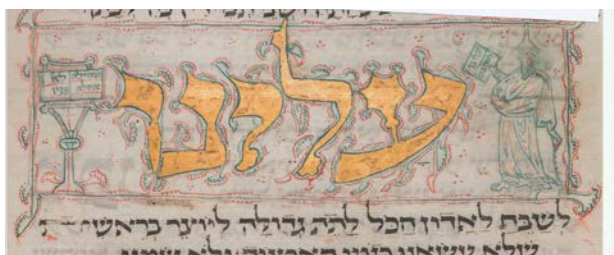 עלינו
לשבח לאדון הכל לתת גדולה ליוצר בראשית
שלא עשאנו כגויי הארצות ולא שמנו